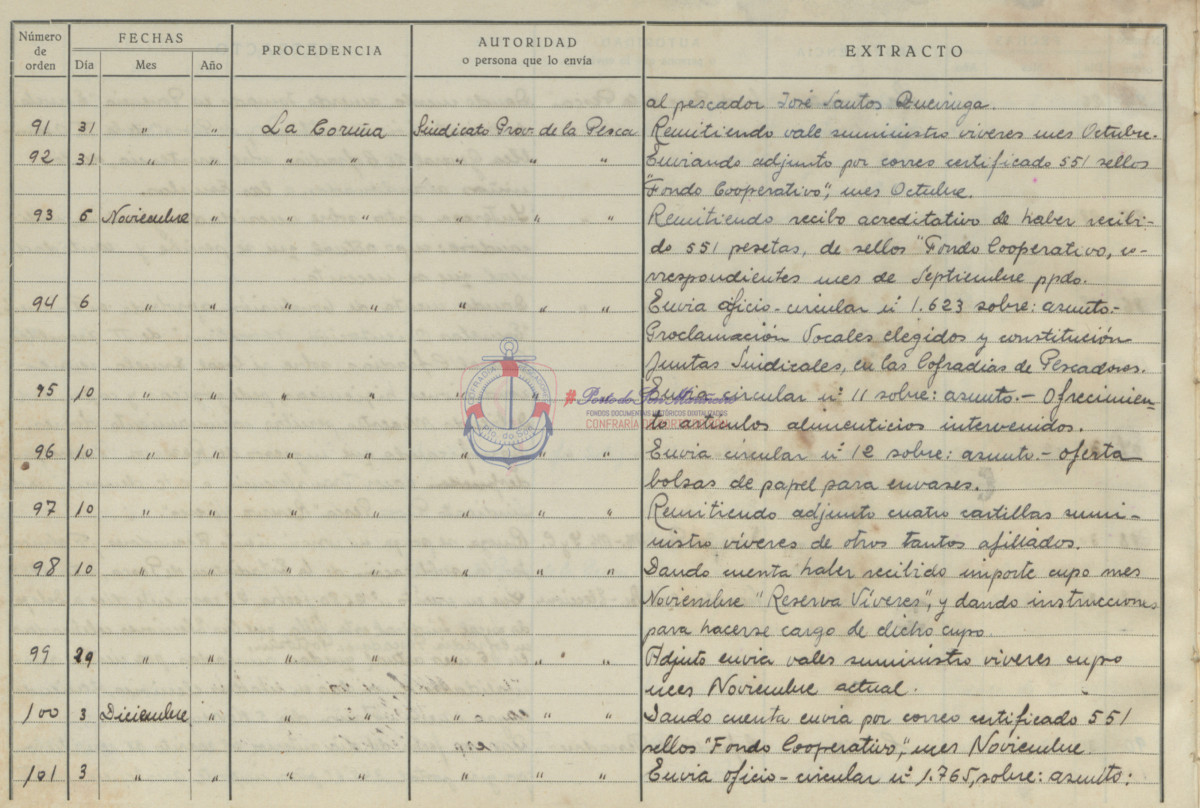 Número de orden | FECHAS | PROCEDENCIA | AUTORIDAD o persona que lo envía | EXTRACTO
Día | Mes | Año
al pescador José Santos Buciruga.
91 31 " " La Coruña Sindicato Prov. de la Pesca Remitiendo vale suministro viveres mes Octubre.
92 31 " " " " " " " Enviando adjunto por correo certificado 551 sellos
"Fondo Cooperativo", mes Octubre.
93 6 Noviembre " " " " " " Remitiendo recibo acreditativo de haber recibi-
do 551 pesetas, de sellos "Fondo Cooperativo, co-
rrespondientes mes de Septiembre ppdo.
94 6 " " " " " " " Envia oficio-circular nº 1.623 sobre: asunto.-
Proclamación Vocales elegidos y constitución
Juntas Sindicales, en las Cofradias de Pescadores.
95 10 " " " " " " Envia circular nº 11 sobre: asunto.- Ofrecimien-
to articulos alimenticios intervenidos.
96 10 " " " " " " " Envia circular nº 12 sobre: asunto.- oferta
bolsas de papel para envases.
97 10 " " " " " " " Remitiendo adjunto cuatro cartillas sumi-
nistro viveres de otros tantos afiliados.
98 10 " " " " " " " Dando cuenta haber recibido importe cupo mes
Noviembre "Reserva Víveres", y dando instrucciones
para hacerse cargo de dicho cupo.
99 29 " " " " " " " Adjuto envia vales suministro viveres cupo
mes Noviembre actual.
100 3 Diciembre " " " " " " Dando cuenta envia por correo certificado 551
sellos "Fondo Cooperativo", mes Noviembre.
101 3 " " " " " " " Envia oficio-circular nº 1.765, sobre: asunto:
COFRADIA PESCADORES
Pto. do Son
#Porto do Son Mariñeiro
FONDOS DOCUMENTAIS HISTÓRICOS DIXITALIZADOS